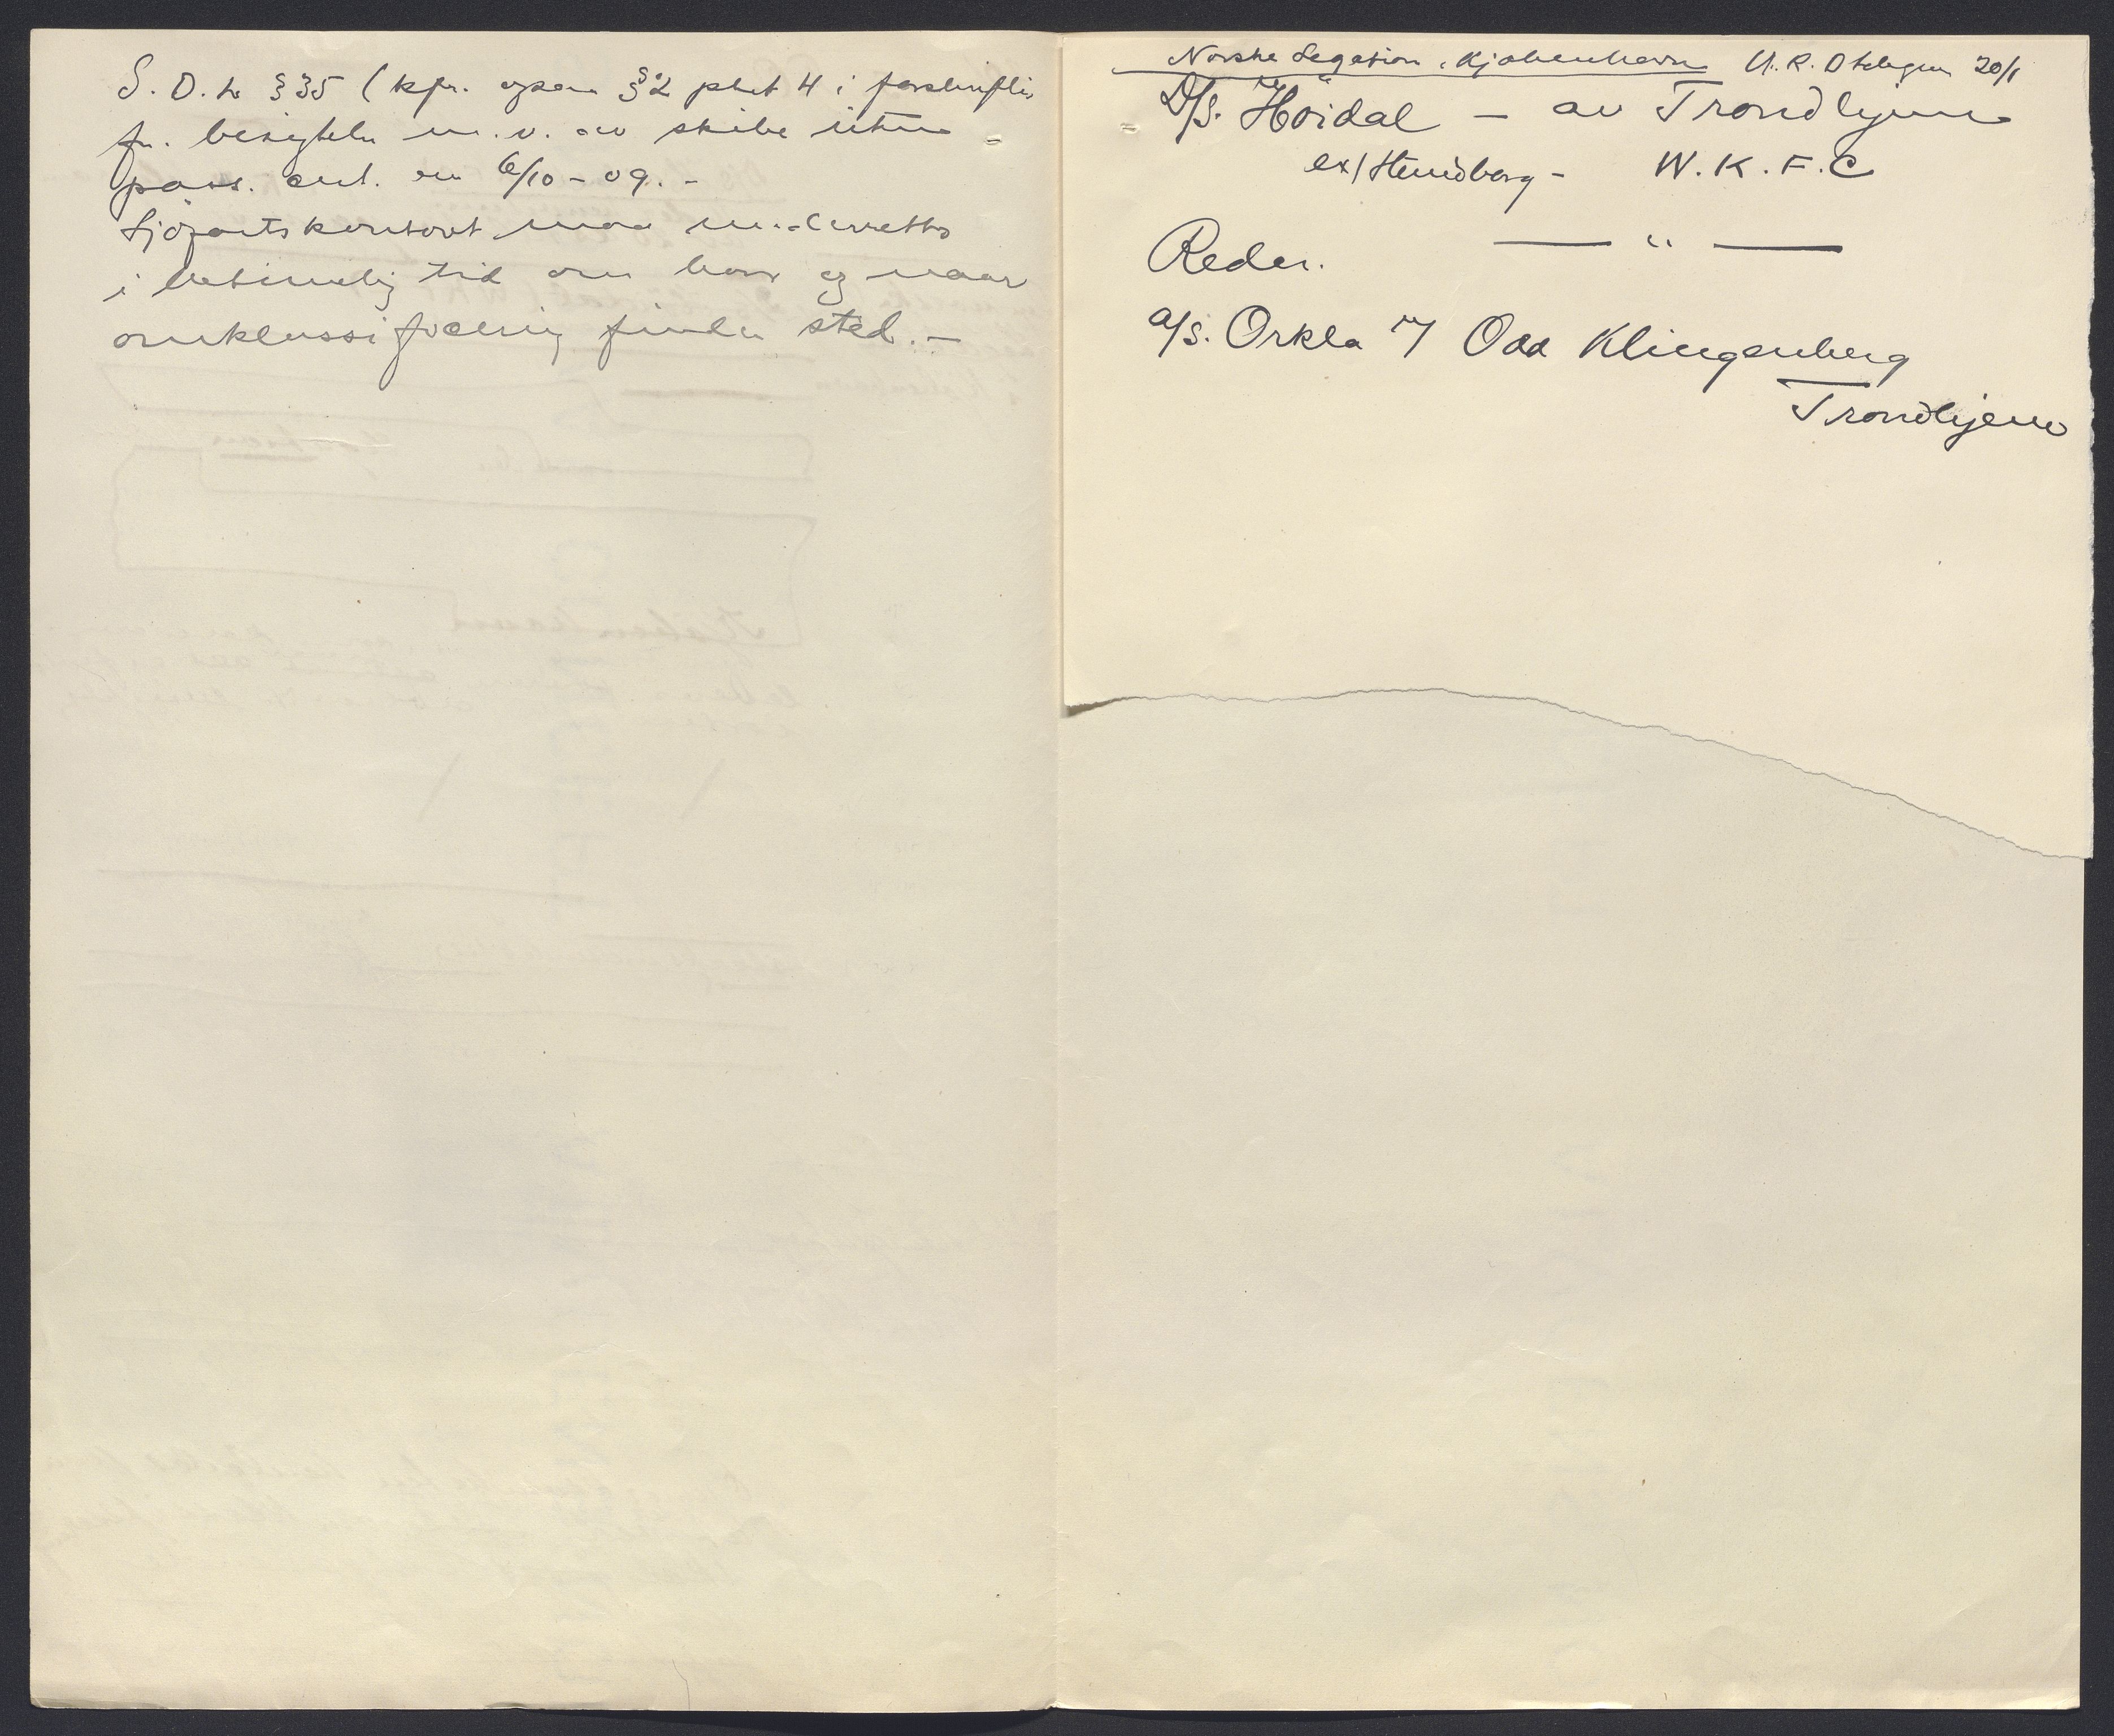 S. D. L. § 35 (kfr. ogsaa § 2 pkt 4 i forskrifter
fr. besigtelse m. v. av skibe uten
pass. cert. av 6/10 - 09. -
Sjöfartskontoret maa underrettes
i betimelig tid om hvor og naar
omklassificering finder sted. -
Norske Legation, Kjöbenhavn U. R. O telegram 20/1
D/S. "Höidal" - av Trondhjem
ex/ - W. K. F. C
— " —
Reder.
A/S. Orkla v/ Odd Klingenberg
Trondhjem